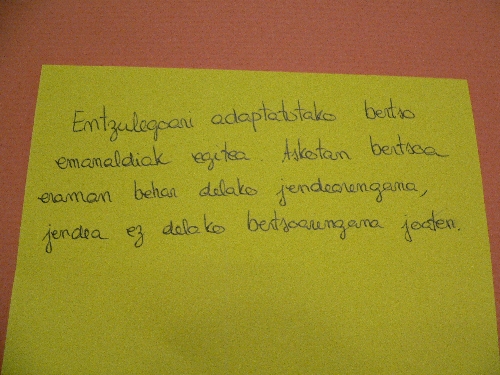 Entzulegoari adaptatutako bertso
emanaldiak egitea. Askotan bertsoa
eraman behar delako jendearengana,
jendea ez delako bertsoarengana joaten.